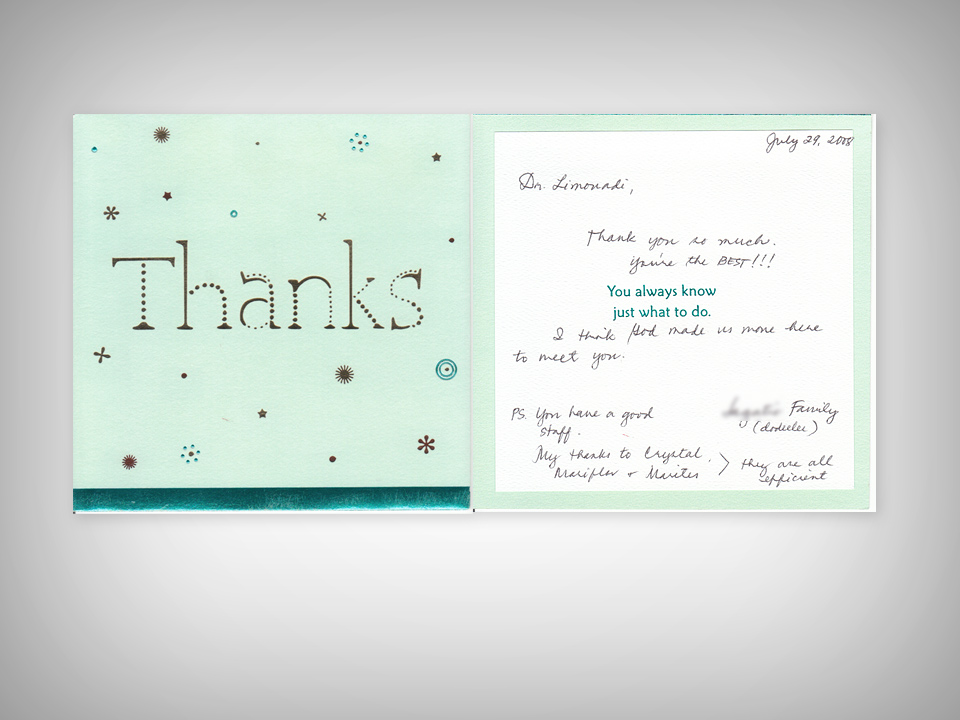 Thanks
July 29, 2008
Dr. Limonadi,
Thank you so much.
You're the BEST!!!
You always know
just what to do.
I think God made us move here
to meet you.
Family
PS. You have a good
staff.
My thanks to Crystal,
Mariflor + Marites > they are all
efficient